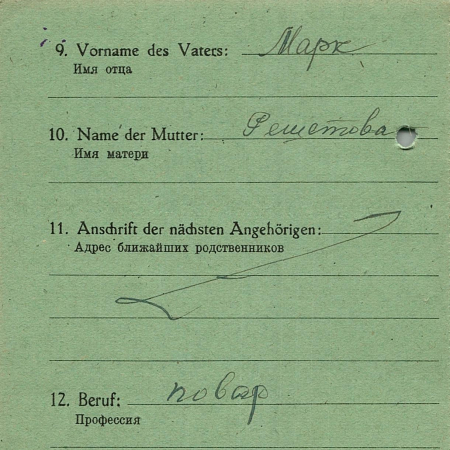 9. Vorname des Vaters: Марк
Имя отца
10. Name der Mutter: Решетова
Имя матери
11. Anschrift der nächsten Angehörigen:
Адрес ближайших родственников
12. Beruf: повар
Профессия